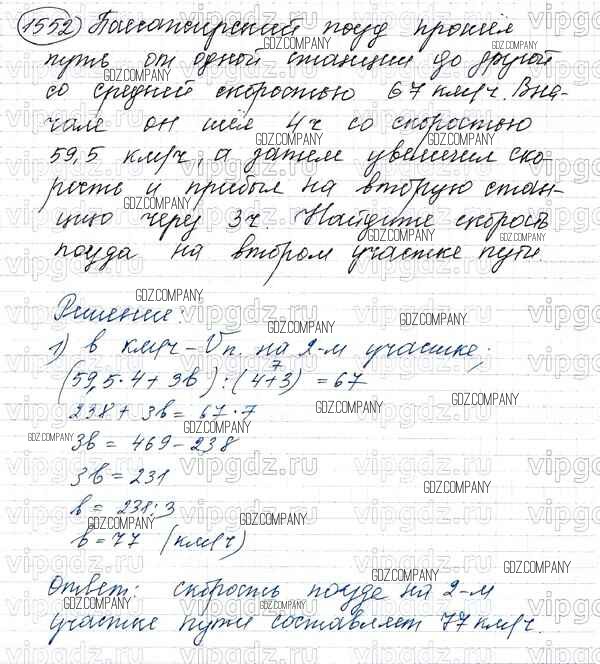 1552 Пассажирский поезд прошёл
путь от одной станции до другой
со средней скоростью 67 км/ч. Вна-
чале он шёл 4 ч со скоростью
59,5 км/ч, а затем увеличил ско-
рость и прибыл на вторую стан-
цию через 3 ч. Найдите скорость
поезда на втором участке пути
Решение:
1) в км/ч – Vп. на 2-м участке;
7
(59,5·4 + 3в) : (4+3) = 67
238 + 3в = 67·7
3в = 469 – 238
3в = 231
в = 231:3
в = 77 (км/ч)
Ответ: скорость поезда на 2-м
участке пути составляет 77 км/ч.